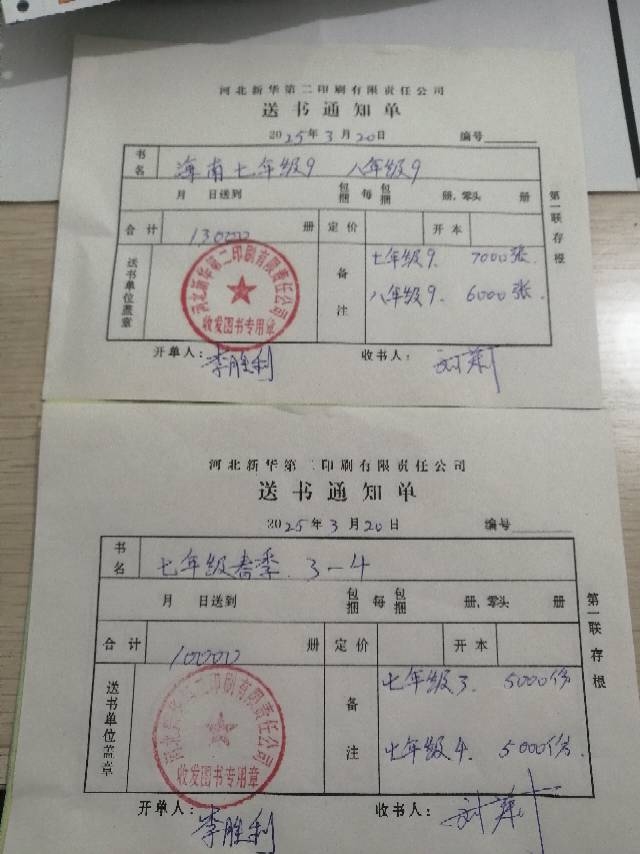 河北新华第二印刷有限责任公司
送书通知单
2025年3月20日 编号
书名 海南七年级9 八年级9
月 日送到 包捆 每 包捆 册,零头 册
合计 13000 册 定价 开本
送书单位盖章
河北新华第二印刷有限责任公司
收发图书专用章
备注
七年级9. 7000张.
八年级9. 6000张.
第一联存根
开单人: 李胜利 收书人:
河北新华第二印刷有限责任公司
送书通知单
2025年3月20日 编号
书名 七年级春季. 3-4
月 日送到 包捆 每 包捆 册,零头 册
合计 10000 册 定价 开本
送书单位盖章
河北新华第二印刷有限责任公司
收发图书专用章
备注
七年级3. 5000份
七年级4. 5000份.
第一联存根
开单人: 李胜利 收书人: